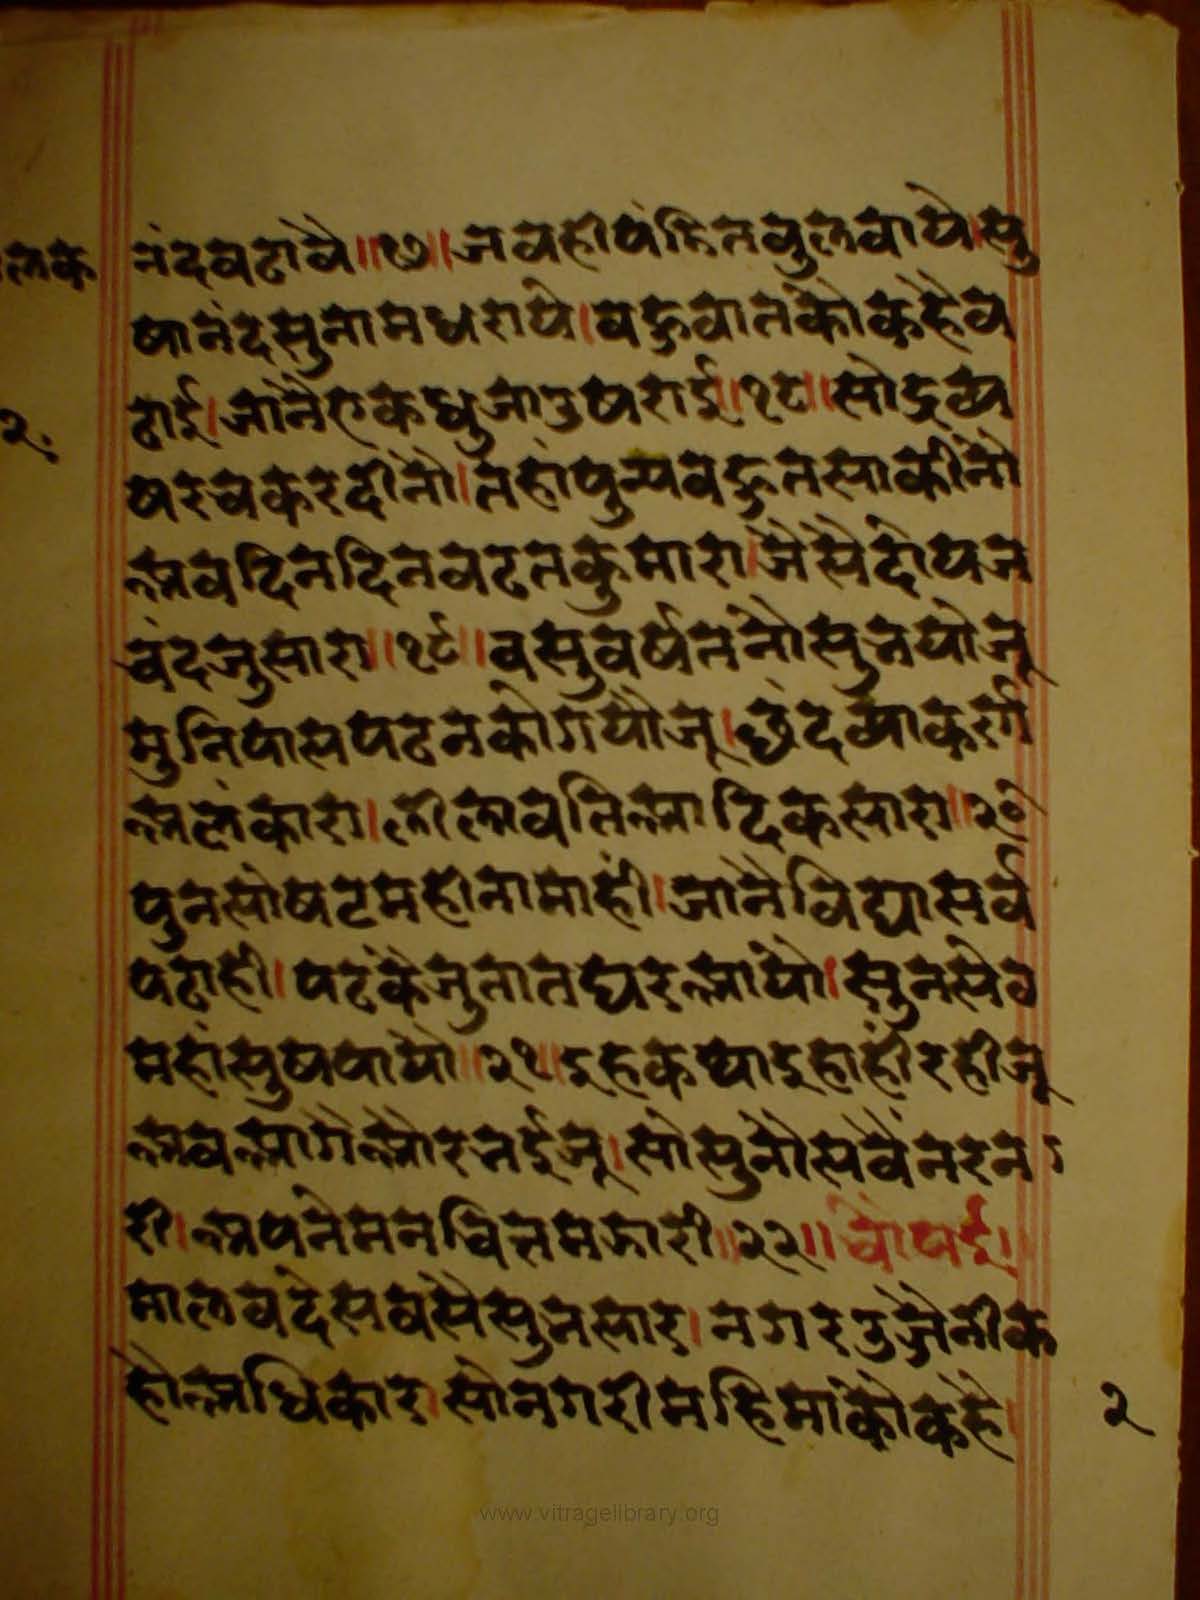 नंदवढावै॥१७॥जवहीपंडितवुलवाये।सु
षानंदसुनामधराये।वहुवातकोकहैव
ढाई।जानैएकधुजाउषराई॥१८॥सोद्रव्य
षरचकरदीनो।तहांपुन्यवहुतसाकीनो
अवदिनदिनवढतकुमारा।जैसैदोयज
चंदजुसारा॥१९॥वसुवर्षतनोसुतयोजू
मुनिपासपढनकोगयोजू।छंदव्याकर्ण
अलंकारा।लीलावतिआदिकसारा॥२०
पुनसोषटमहीनामाहीं।जानैविद्यासर्व
पढाही।पढकैजुतातघरआयो।सुनसेव
महांसुषपायो॥२१॥इहकथाइहांहीरहीजू
अवआगैओरनईजू।सोसुनोसवैंनरना
री।अपनेमनचितमझारी॥२२॥चौपई॥
मालवदेसवसैसुनसार।नगरउजैनीक
होअधिकार।सोनगरीमहिमाकोकहै।
२
लकं
२.
www.vitragelibrary.org